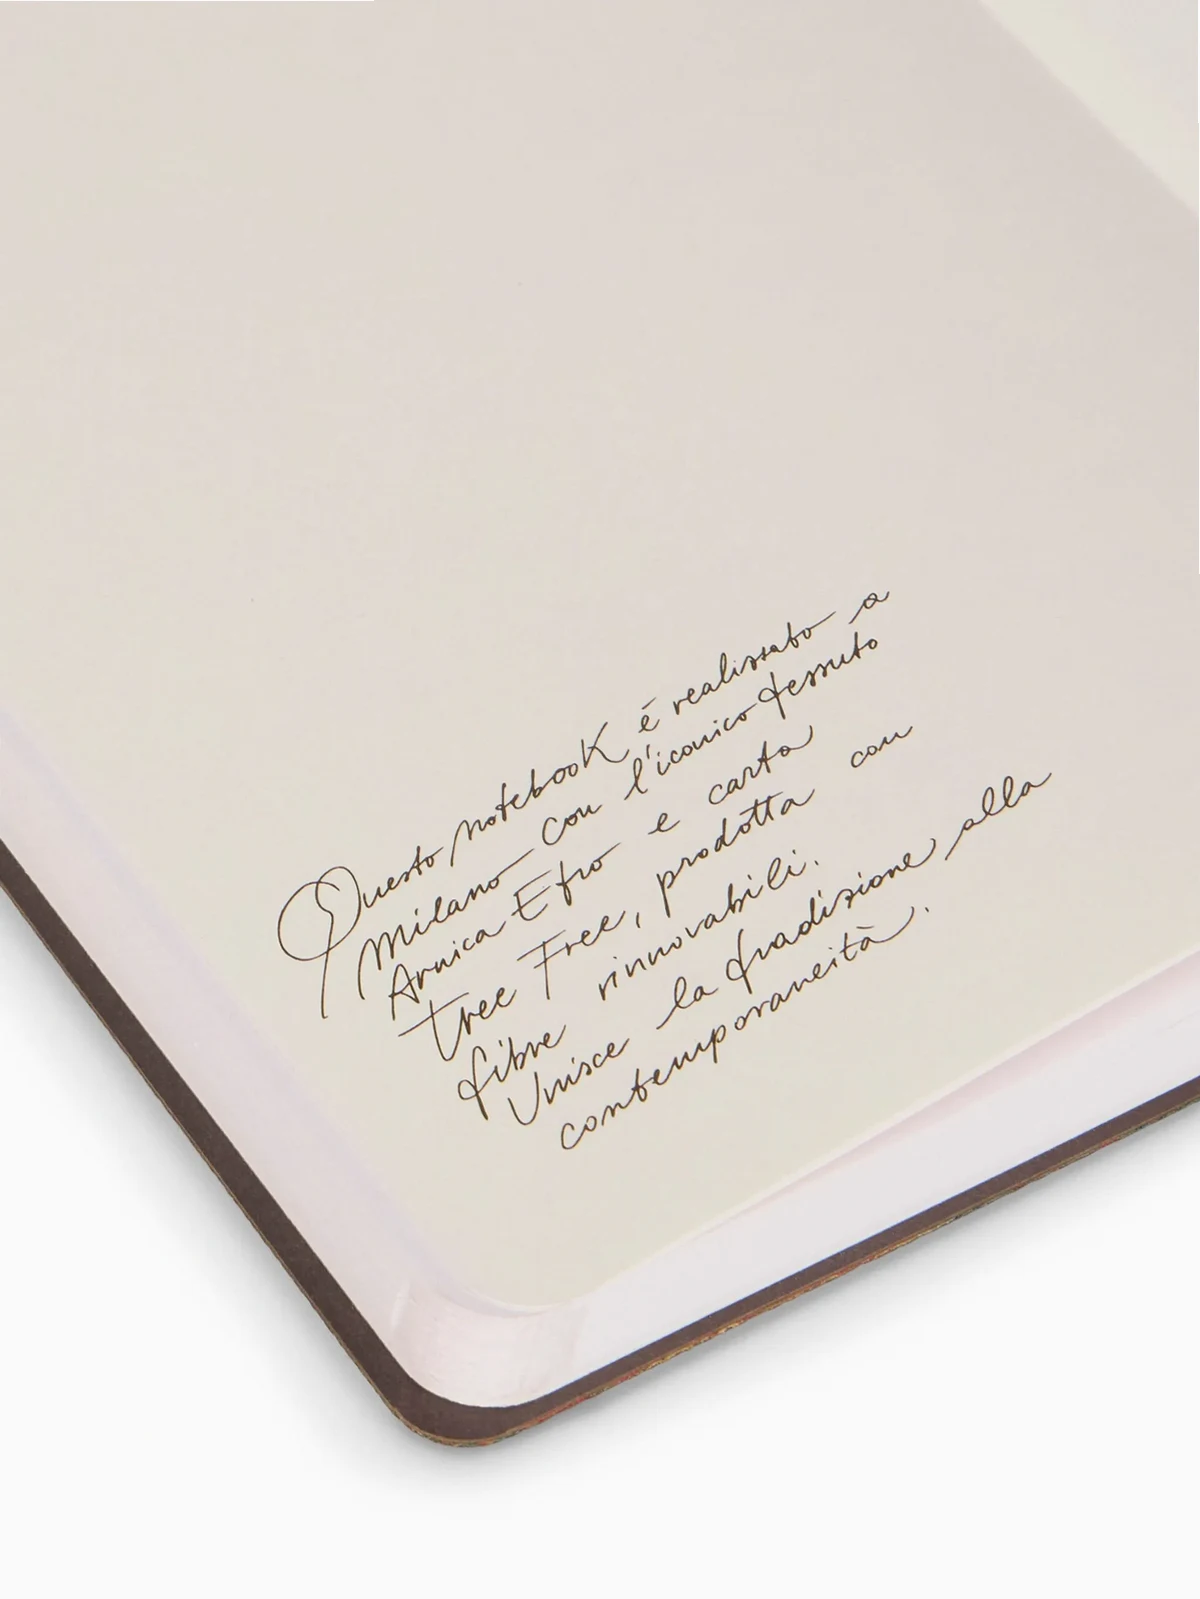 Questo notebook é realizzato a
Milano con l'iconico tessuto
Arnica Etro e carta
Tree Free, prodotta con
fibre rinnovabili.
Unisce la tradizione alla
contemporaneità.